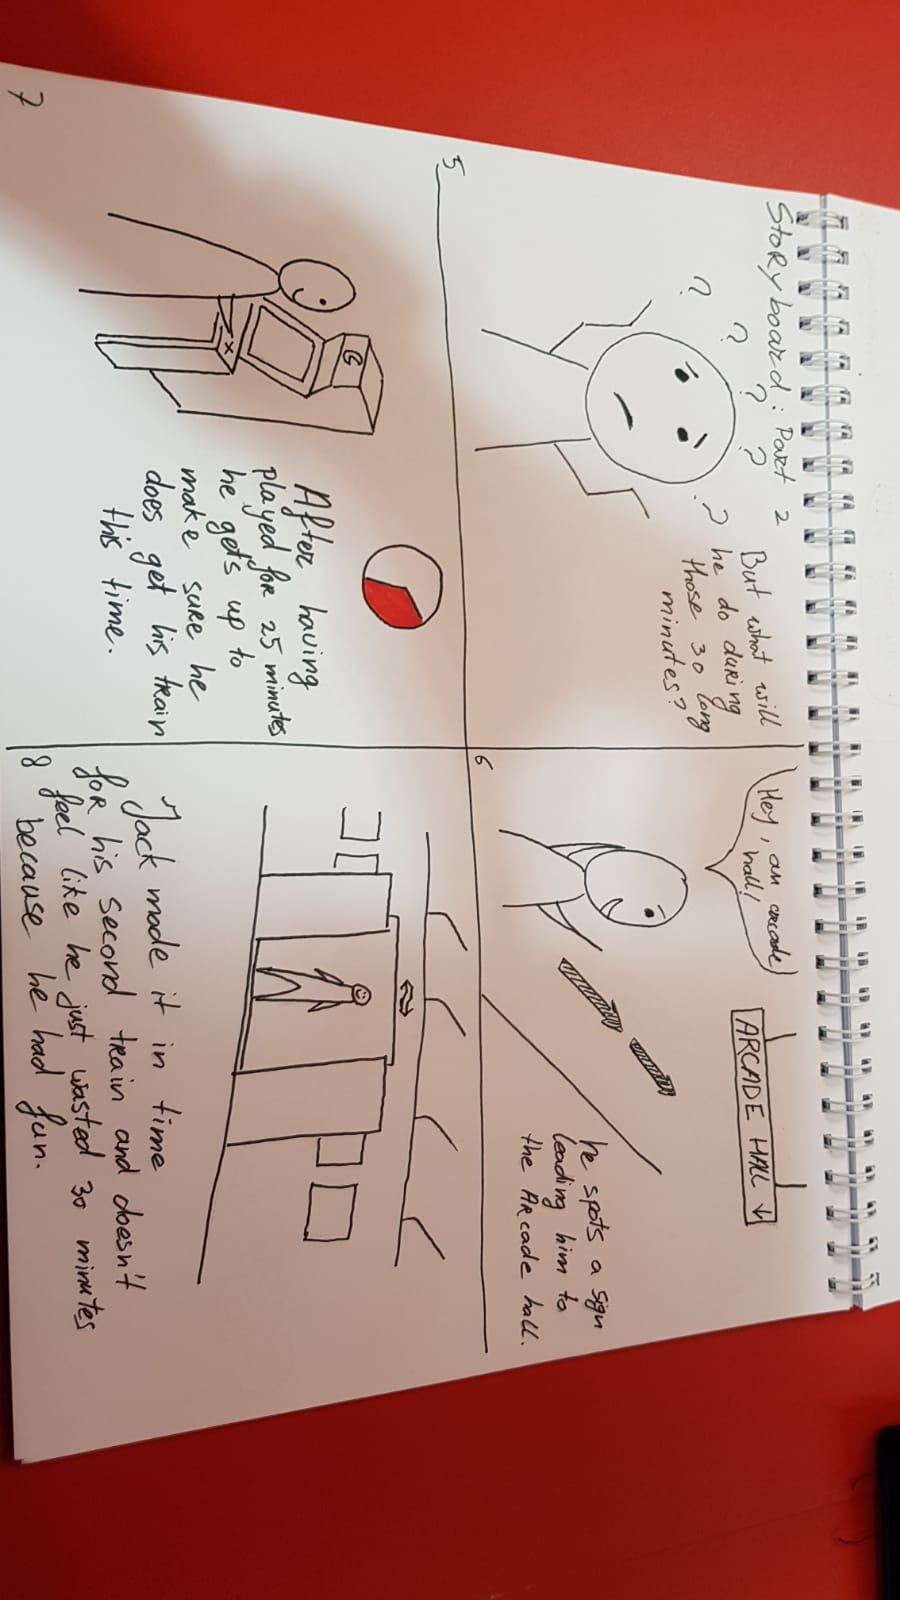 Storyboard: Part 2
?
?
?
?
?
But what will
he do during
those 30 long
minutes?
5
Hey, an arcade
hall!
ARCADE HALL ↓
he spots a sign
leading him to
the Arcade hall.
6
After having
played for 25 minutes
he gets up to
make sure he
does get his train
this time.
7
Jack made it in time
for his second train and doesn't
feel like he just wasted 30 minutes
because he had fun.
8